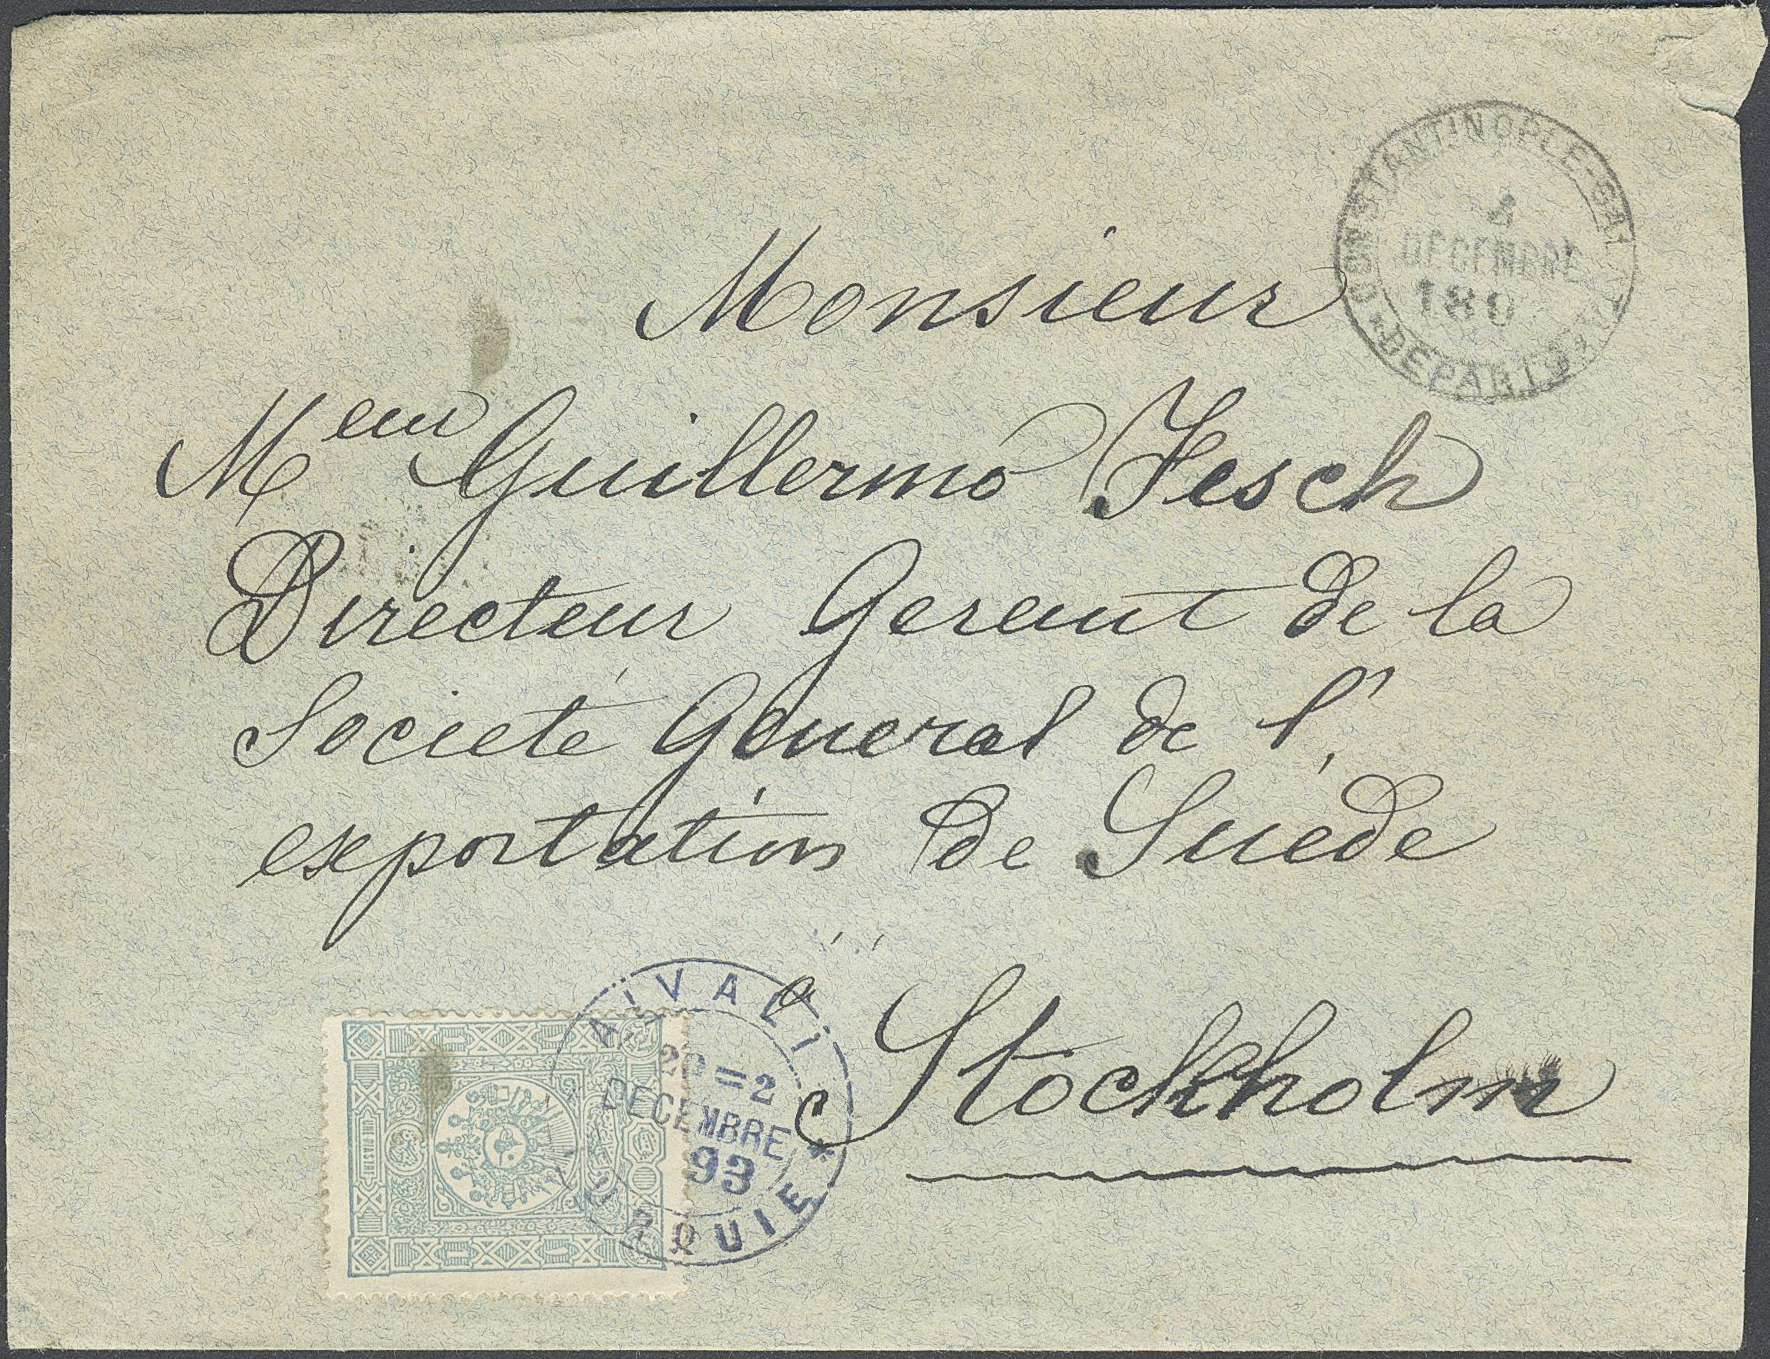 CONSTANTINOPLE-GALATA
4
DECEMBRE
189
DEPART
Monsieur
Meur Guillermo Fesch
Directeur Gerant de la
Societé General de l'
exportation de Suéde
a Stockholm
AIVALI
20=2
DECEMBRE
93
TURQUIE
UNE PIASTRE